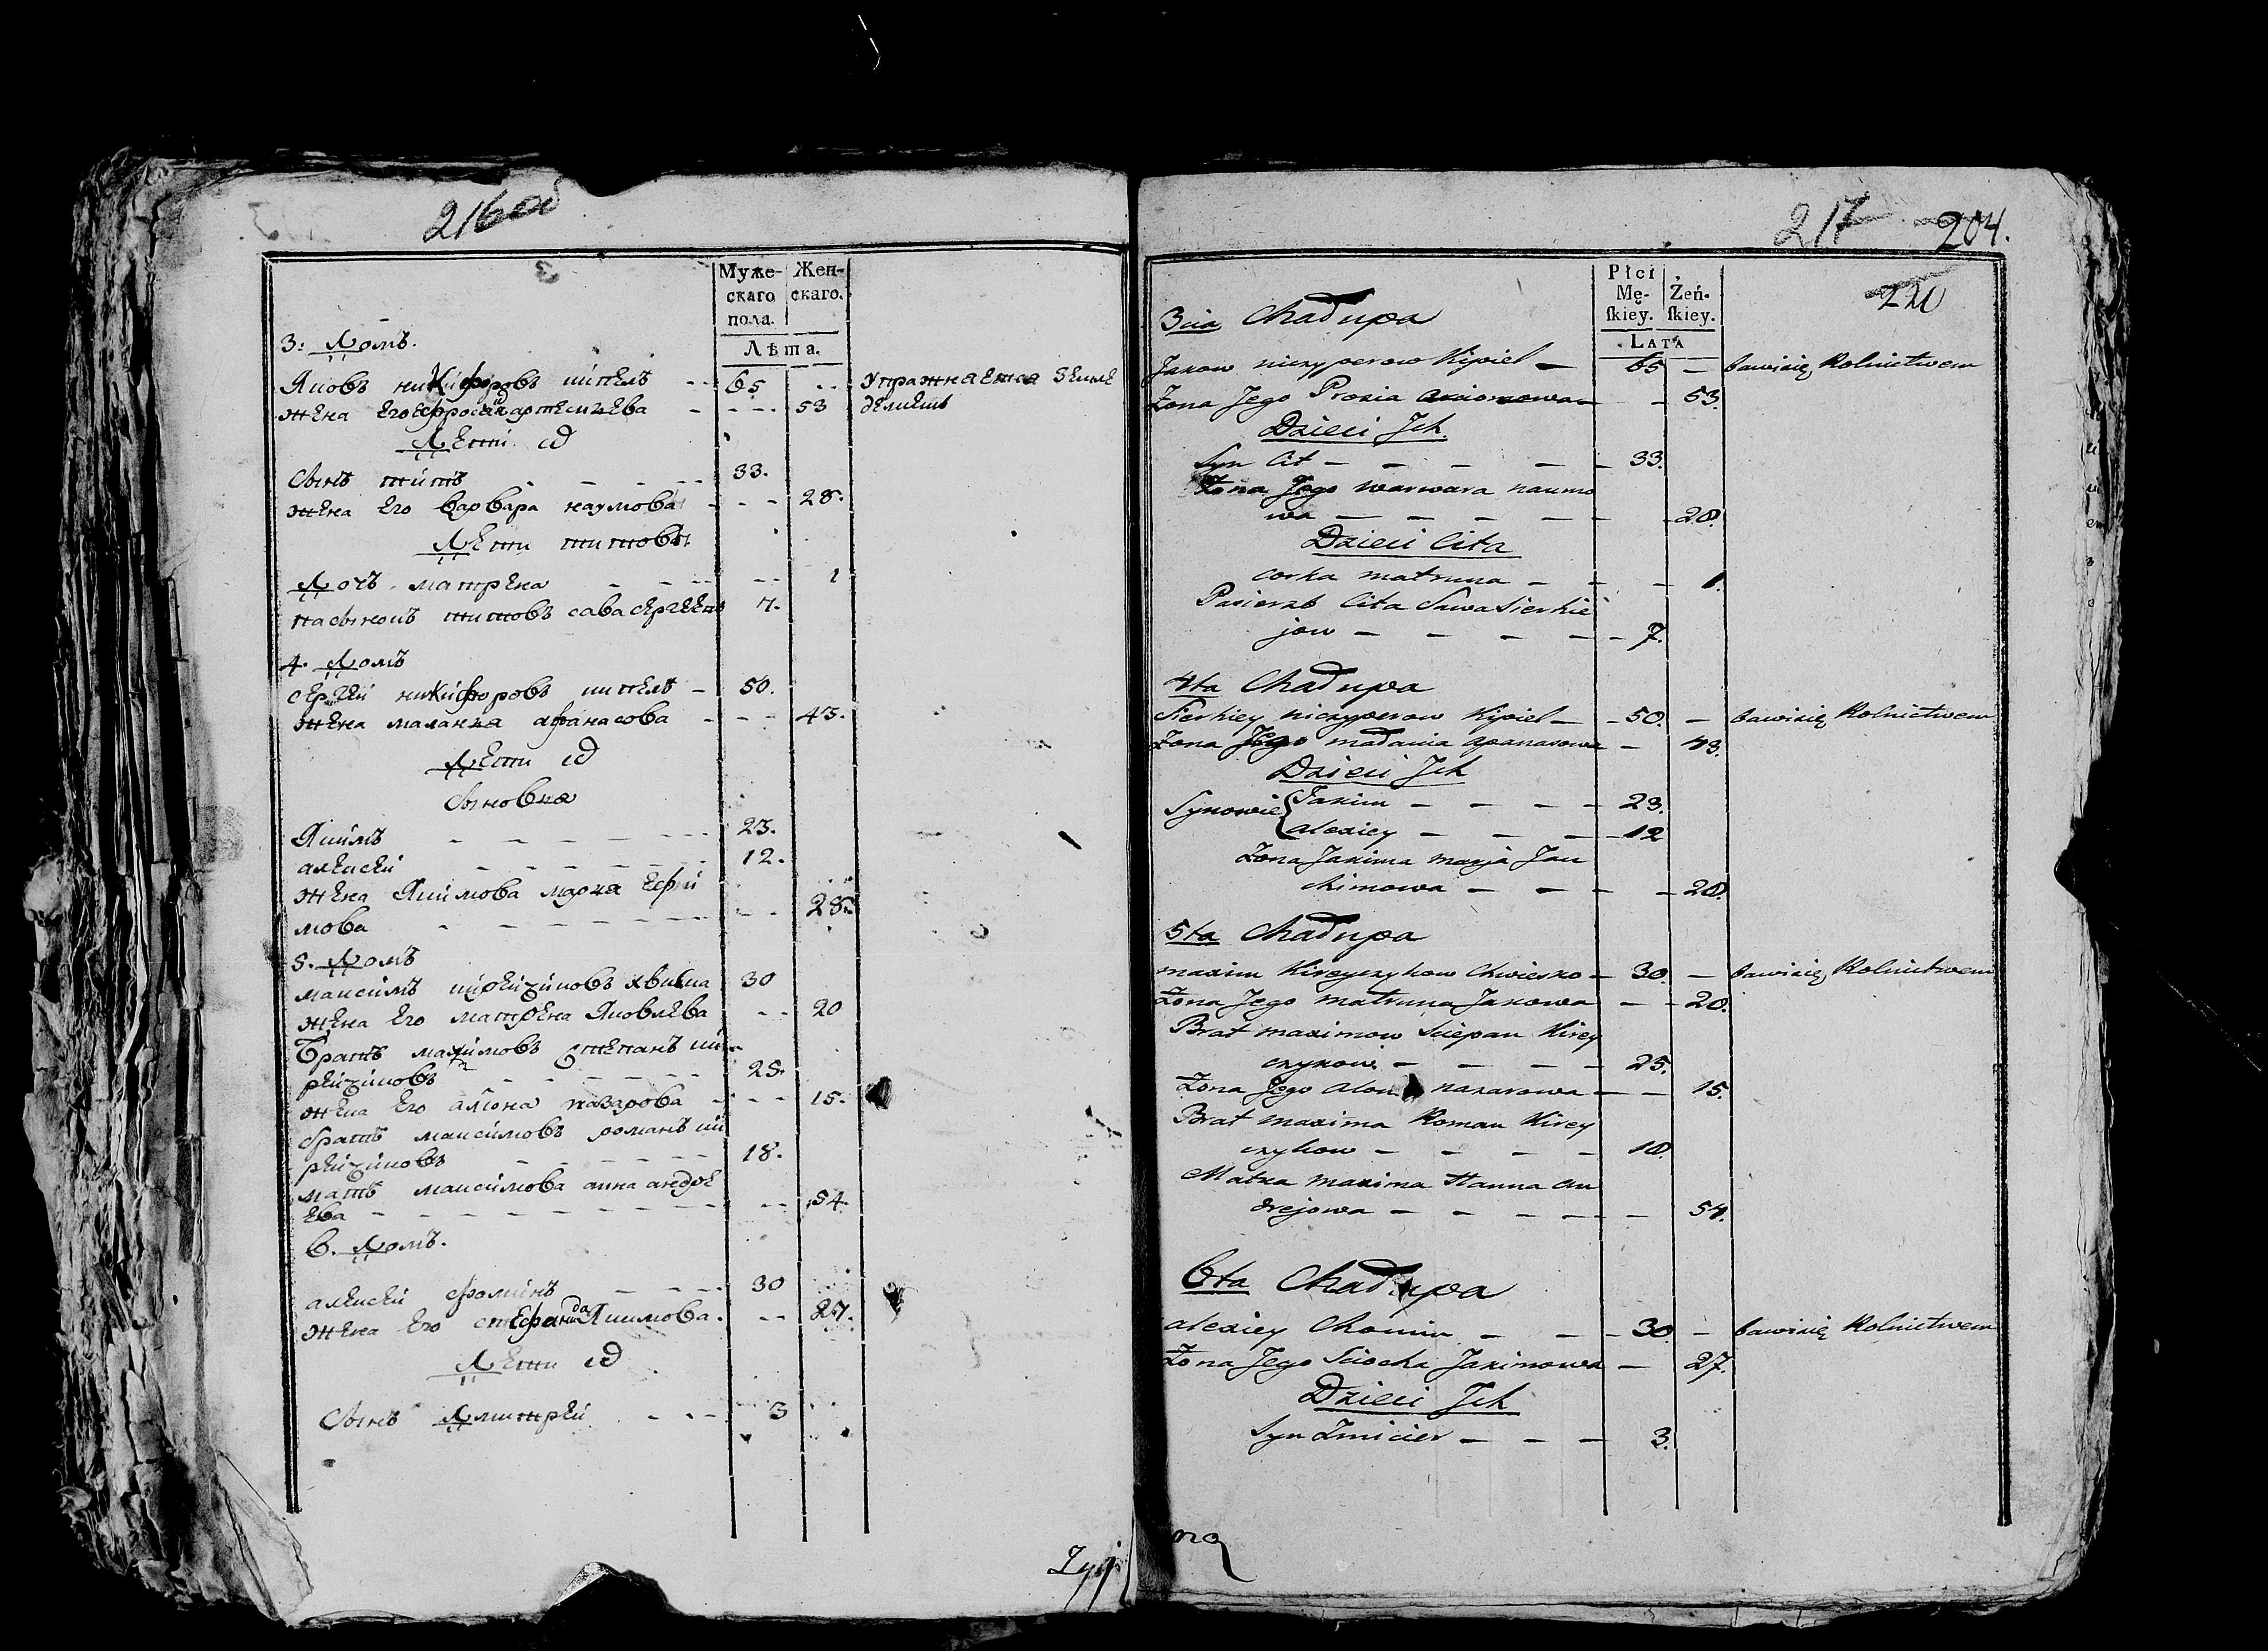 216 об
Муже-
скаго
пола.
Жен-
скаго.
Лѣта.
3: Домъ.
Яковъ никифоровъ кипелъ 65 Упражняется Земле
жена Его Ефросиня артемиева 53 дѣлиемъ
Дети их
Сынъ титъ 33.
жена Его варвара наумова 28.
Дети титовы
Дочъ матрена 1
пасынокъ титовъ сава сергеевъ 7.
4. Домъ
сергей никифоровъ кипелъ 50.
жена маланья афанасова 43.
Дети их
Сыновья
Якимъ 23.
алексей 12.
жена Якимова марья Ефи
мова 28.
5. Домъ
максимъ кирейчиковъ 30
жена Его матрена Яковлева 20
Братъ максимовъ степанъ ки
рейчиковъ 25.
жена Его алiона назарова 15.
братъ максимовъ романъ ки
рейчиковъ 18.
мать максимова анна андре
ева 54.
6. Домъ.
алексей фоминъ 30
жена Его стефанида Якимова. 27.
Дети их
Сынъ Дмитрей 3
217 204.
220
Płci
Mę-
ſkiey.
Żeń-
ſkiey.
LATA
3cia Chałupa
Jakow niczyperow Kipiel — 65 — bawisię Rolnictwem
Żona Jego Prosia 53.
Dzieci Jch
Syn Cit — 33.
Żona Jego warwara naumo
wa — 28.
Dzieci Cita
corka matruna — 1.
Pasierzb Cita Sawa Sierhie
jow — 7.
4ta Chałupa
Sierhiey niczyperow Kipiel — 50. — bawisię Rolnictwem
Żona Jego małania apanasowa — 43.
Dzieci Jch
Synowie { Jakim — 23.
alexiey — 12
Żona Jakima marja Jau
chimowa — 28.
5ta Chałupa
maxim Kireyczykow Chwiesko — 30. — bawisię Rolnictwem
Żona Jego matruna Jakowa — 20.
Brat maximow Sciepan Kirey
czykow — 25.
Żona Jego nazarowa — 15.
Brat maxima Roman Kirey
czykow — 18.
Matka maxima Hanna an
drejowa — 54.
6ta Chałupa
alexiey Chomin — 30. — bawisię Rolnictwem
Żona Jego Sciocha Jakimowa — 27.
Dzieci Jch
Syn Zmicier — 3.